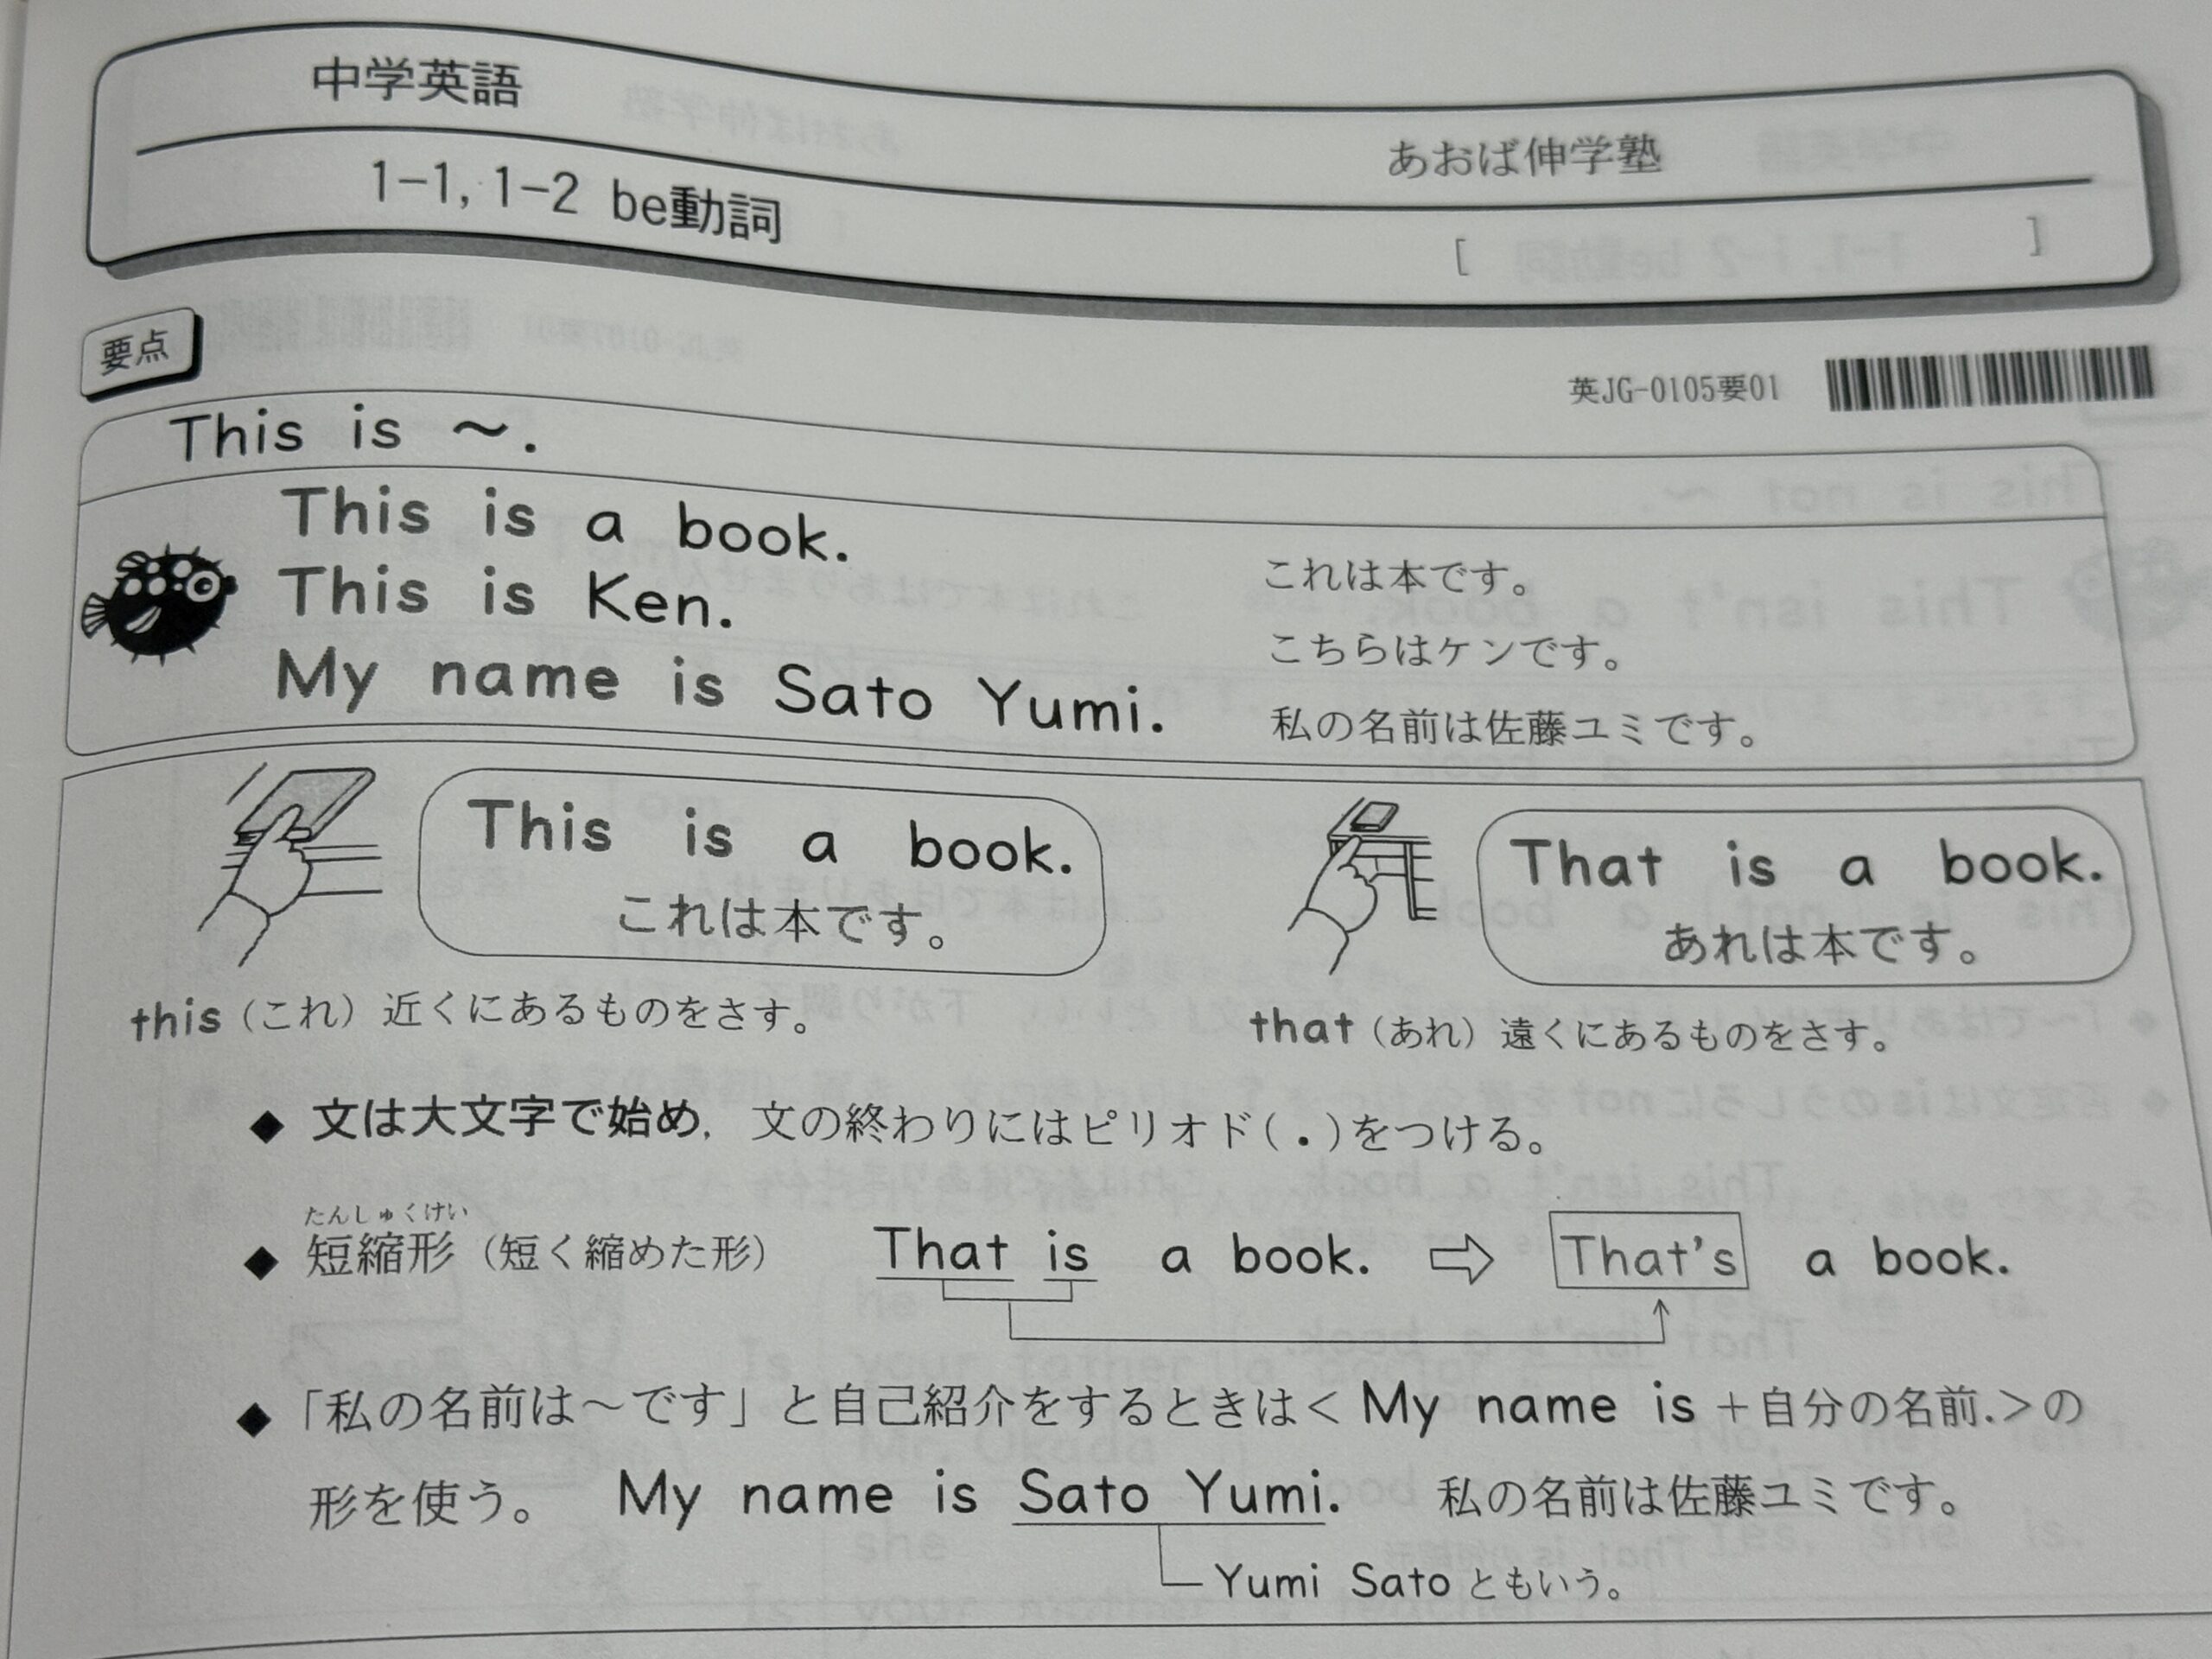 中学英語
あおば伸学塾
1-1, 1-2 be動詞 [ ]
要点
英JG-0105要01
This is ～.
This is a book. これは本です。
This is Ken. こちらはケンです。
My name is Sato Yumi. 私の名前は佐藤ユミです。
This is a book.
これは本です。
That is a book.
あれは本です。
this（これ）近くにあるものをさす。
that（あれ）遠くにあるものをさす。
◆ 文は大文字で始め，文の終わりにはピリオド(.)をつける。
たんしゅくけい
◆ 短縮形（短く縮めた形） That is a book. ⇨ That's a book.
◆ 「私の名前は～です」と自己紹介をするときは＜My name is＋自分の名前.＞の
形を使う。 My name is Sato Yumi. 私の名前は佐藤ユミです。
Yumi Sato ともいう。